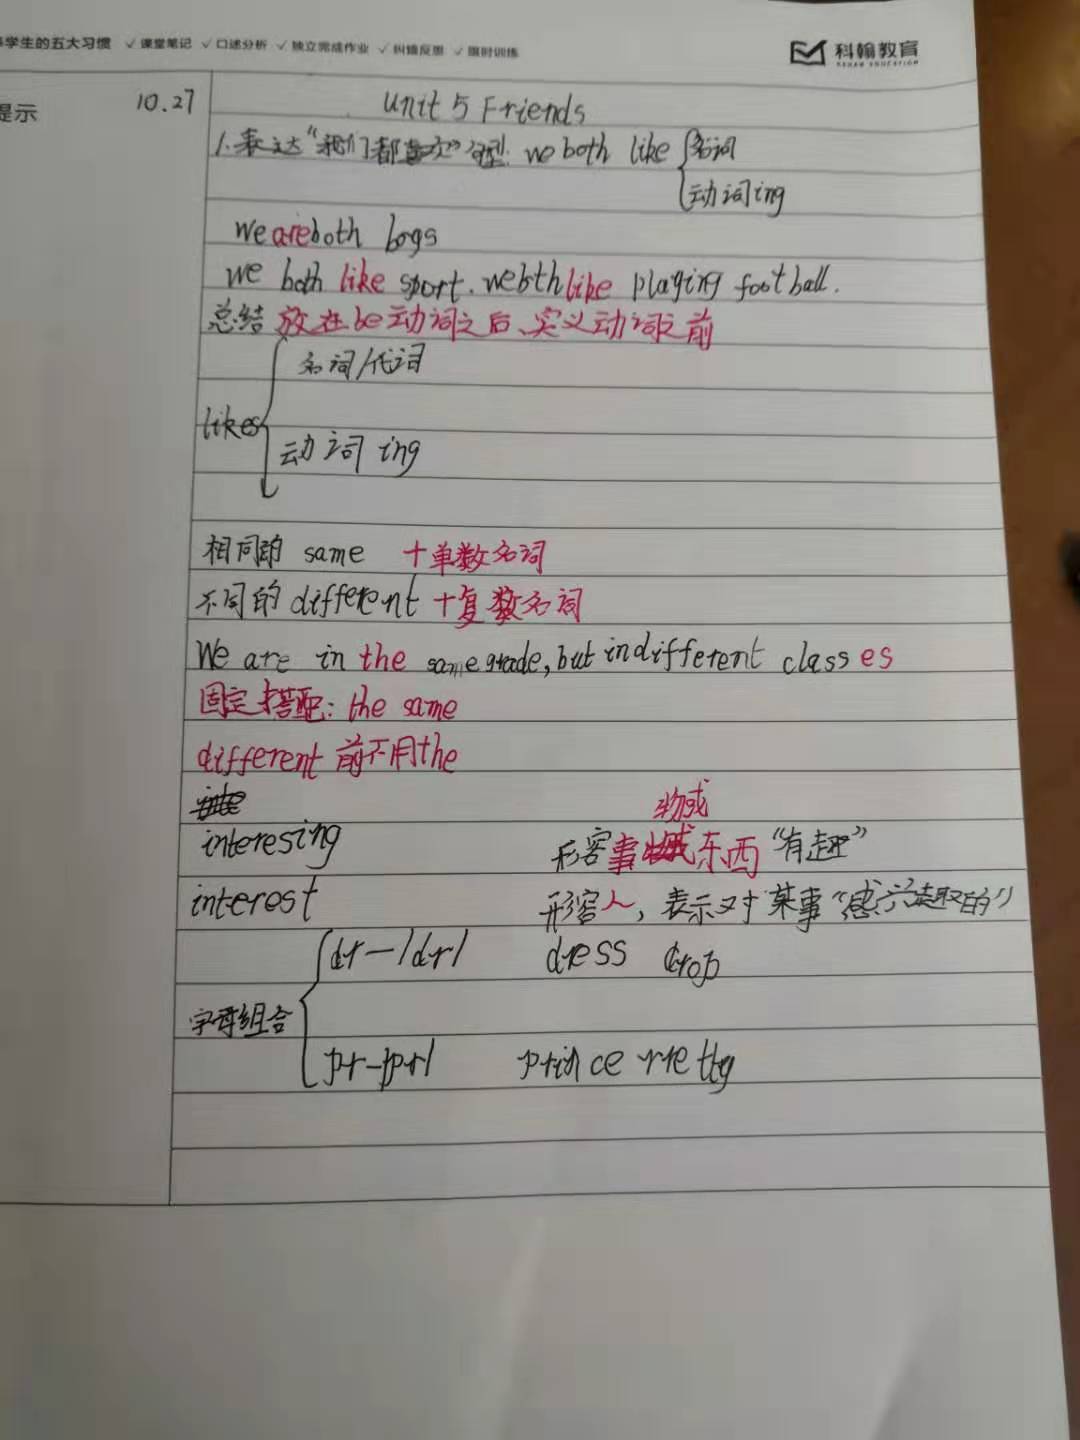 学生的五大习惯 ✓课堂笔记 ✓口述分析 ✓独立完成作业 ✓纠错反思 ✓限时训练
科翰教育
KEHAN EDUCATION
提示
10.27
Unit 5 Friends
1.表达“我们都喜欢”句型. we both like { 名词
动词ing
we are both boys
we both like sport. we both like playing football.
总结 放在be动词之后、实义动词之前
名词/代词
likes
动词 ing
相同的 same +单数名词
不同的 different +复数名词
We are in the same grade, but in different classes
固定搭配: the same
different 前不用the
物或
interesing 形容事物或东西“有趣”
interest 形容人, 表示对某事“感兴趣的”
dr-/dr/ dress drop
字母组合
pr-/pr/ prince pretty